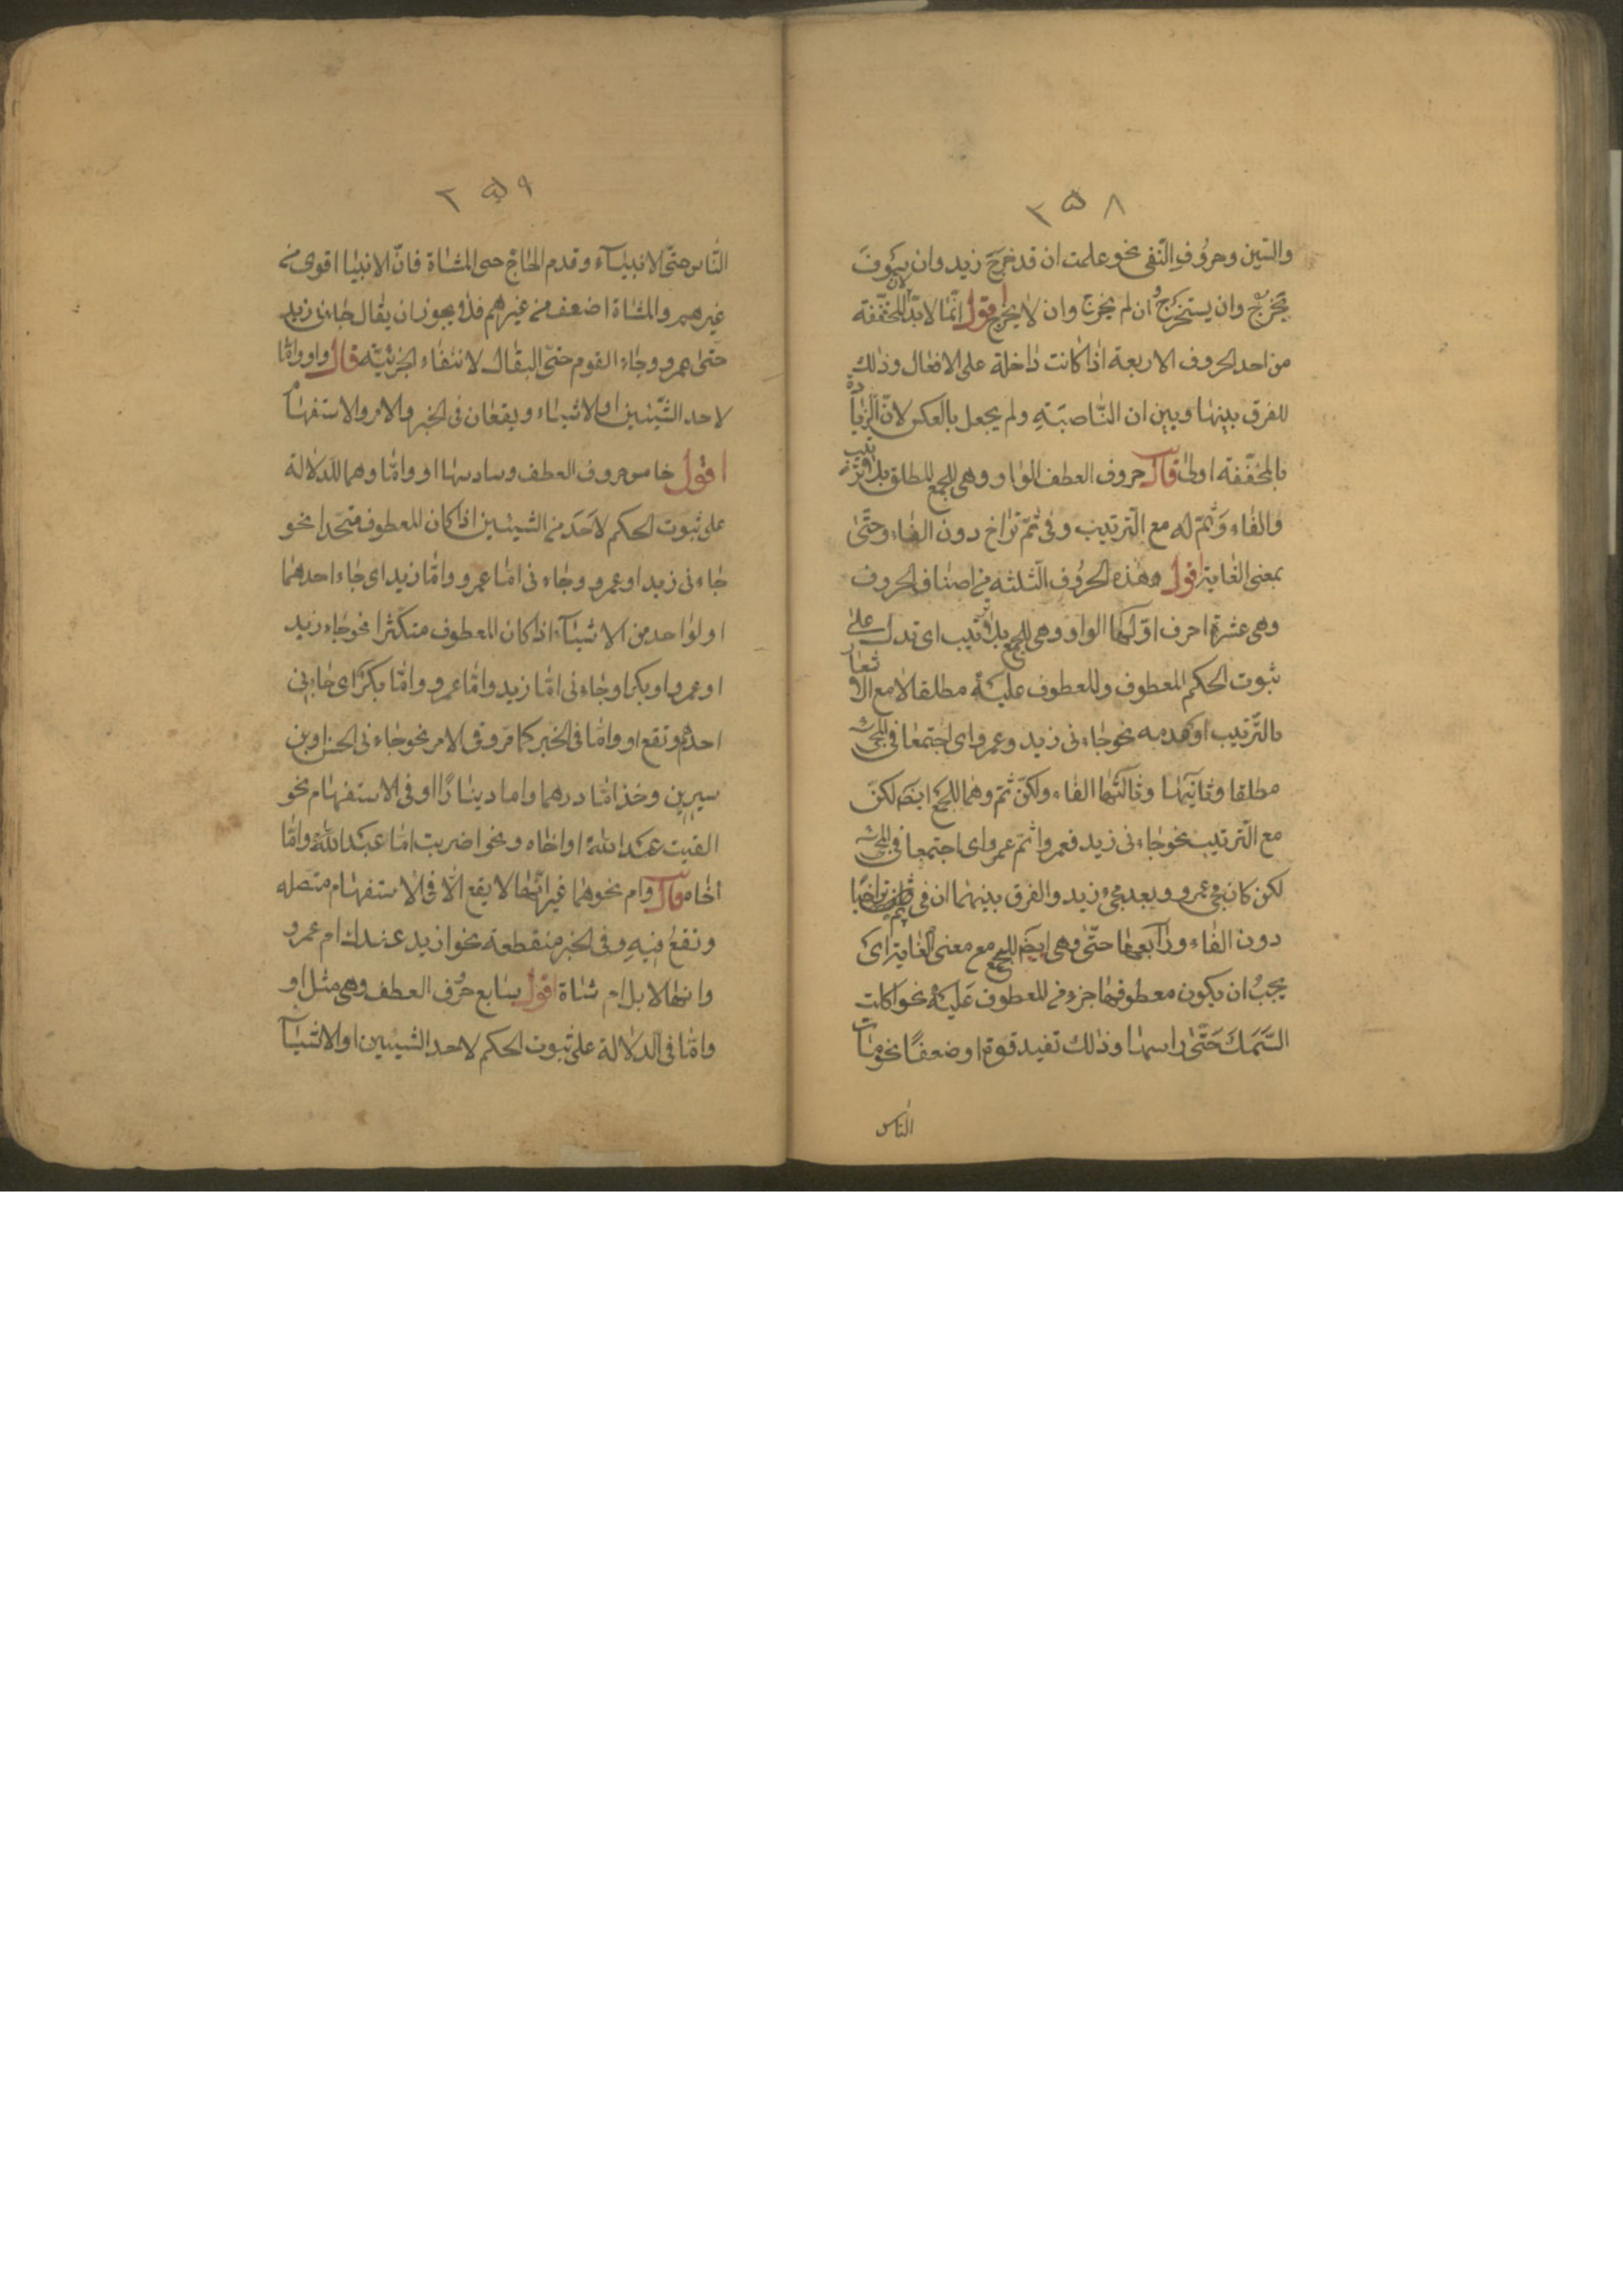 ٢٥٨
والسّين وحروف النّفى نحو علمت ان قد خرج زيد وان سَوفَ
يخرج وان سيخرج وان لم يخرج وان لا يخرج اقول انّما لا بدّ للمخفّفة
من احد الحروف الاربعة اذا كانت داخلة على الافعال وذلك
للفرق بينها وبين ان النّاصبَةِ ولم يجعل بالعكس لانّ الزّيادة
بالمخفّفة اولى قال حروف العطف الواو وهى للجمع المطلق بلا ترتيب
والفاء وَثُمّ له مع التّرتيب وفى ثمّ تراخ دون الفاء وحتّى
بمعنى الغاية اقول هذه الحروف الثلثه من اصناف الحروف
وهى عشرة احرف اوّلها الواو وهى للجمع بلا ترتيب اى تدل على
ثبوت الحكم للمعطوف وللمعطوف عليه مطلقا لا مع الاشعار
بالتّرتيب او عدمه نحو جاءنى زيد وعمرو اى اجتمعا فى المجئ
مطلقا وثانيها وثالثها الفاء وثمّ وهما للجمع ايضَا لكن
مع التّرتيب نحو جاءنى زيد فعمرو او ثمّ عمرو اى اجتمعا فى المجئ
لكن كان مجئ عمرو بعد مجئ زيد والفرق بينهما ان فى ثم تراخيا
دون الفاء ورابعها حتّى وهى ايضا للجمع مع معنى الغاية اى
يجبُ ان يكون معطوفها جزء من المعطوف عَليهْ نحو اكلت
السَّمَكَ حَتّى راسها وذلك تفيد قوة او ضعفًا نحو مات
الناس
٢٥٩
النّاس حتّى الانبيَآء وقدم الحاجّ حتى المشاة فانّ الانبيا اقوى من
غيرهم والمشاة اضعف من غيرهم فلا يجوز ان يقال جاءنى زيد
حتى عمرو وجاء القوم حتّى البقال لانتفاء الجزئيّة قال واو وامّا
لاحد الشّيئين او الاشياء ويقعان فى الخبر والامر والاستفهام
اقول خامس حروف العطف وسادسها او وامّا وهما للدلالة
على ثبوت الحكم لاَحَدَ من الشيئين اذا كان المعطوف متحّدا نحو
جاءنى زيد او عمرو وجاءنى امّا عمرو وامّا زيد اى جاء احدهما
او لواحد من الاشيآء اذا كان المعطوف متكثرا نحو جاء زيد
او عمرو او بكر او جاءنى امّا زيد وامّا عمرو وامّا بكر اى جاءنى
احدهم وتقع او وامّا فى الخبر كما مرّ وفى الامر نحو جاءنى الحسن او بن
سيرين وخذ امّا درهما واما دينارًا او فى الاستفهام نحو
القيت عبد الله او اخاه ونحو اضربت امّا عبد الله وامّا
اخاه قال وام نحوهما غير انّها لا يقع الّا فى الاستفهام متصله
وتقعُ فيهِ وفى الخبر منقطعة نحو ازيد عندك ام عمرو
وانها لابل ام شاة اقول سابع حرُف العطف وهى مثل او
وامّا فى الدلالة على ثبوت الحكم لاحد الشيئين او الاشيآ